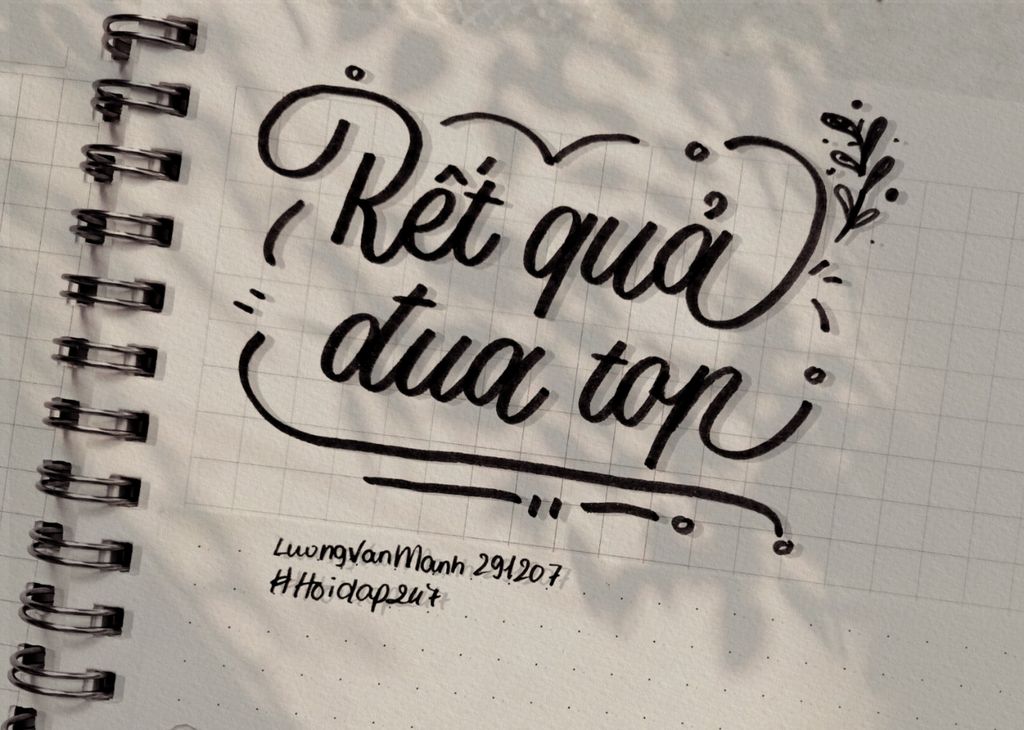 Kết quả
đua top
LuongVanManh 291207
#Hoidap247